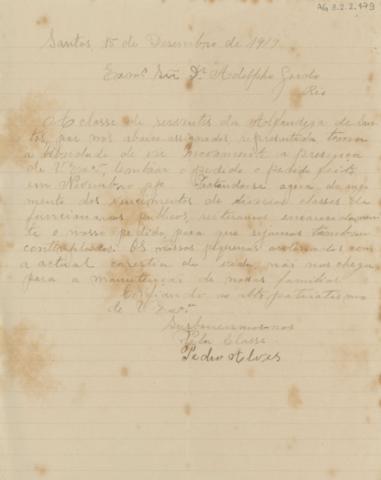 AG 3.2.2.179
Santos, 15 de Desembro de 1917
Exmo Snr Dr Adolpho Gordo
Rio
A classe de serventes da Alfandega de San
tos, por nos abaixo assignados, representada toma
a liberdade de vir novamente a presença
de V. Exa. lembrar o pedido feito
em Novembro p.p. Tratando-se agora do aug
mento dos vencimentos de diversas classes de
funccionarios publicos, reiteramos
te o nosso pedido, para que sejamos tambem
contemplados. Os nossos ordenados com
a actual carestia da vida não nos chega
para a manutenção de nossas familias
Confiando no alto patriotismo
de V. Exa.
Subscrevemo-nos
Pela Classe
Pedro Alves